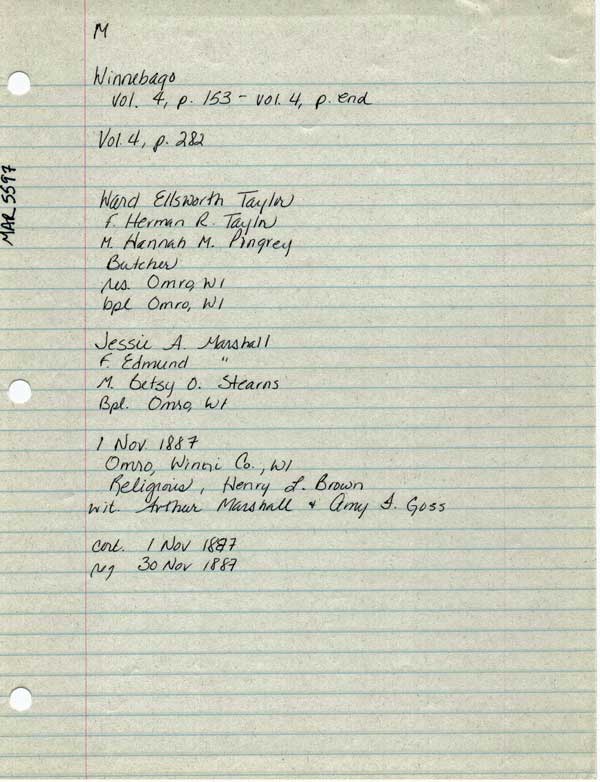 M
Winnebago
Vol. 4, p. 153 - vol. 4, p. end
Vol. 4, p. 282
MAR 5597
Ward Ellsworth Taylor
F. Herman R. Taylor
M. Hannah M. Pingrey
Butcher
res. Omro, WI
bpl Omro, WI
Jessie A. Marshall
F. Edmund "
M. Betsy O. Stearns
Bpl. Omro, WI
1 Nov 1887
Omro, Winni Co., WI
Religious, Henry L. Brown
wit. Arthur Marshall + Amy Goss
cert. 1 Nov 1887
reg 30 Nov 1887